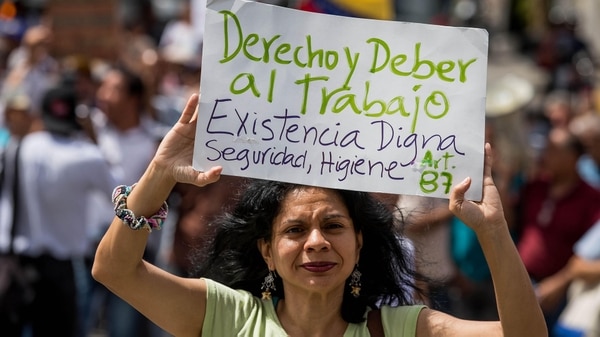 Derecho y Deber
al Trabajo
Existencia Digna
Seguridad, Higiene
Art.
87